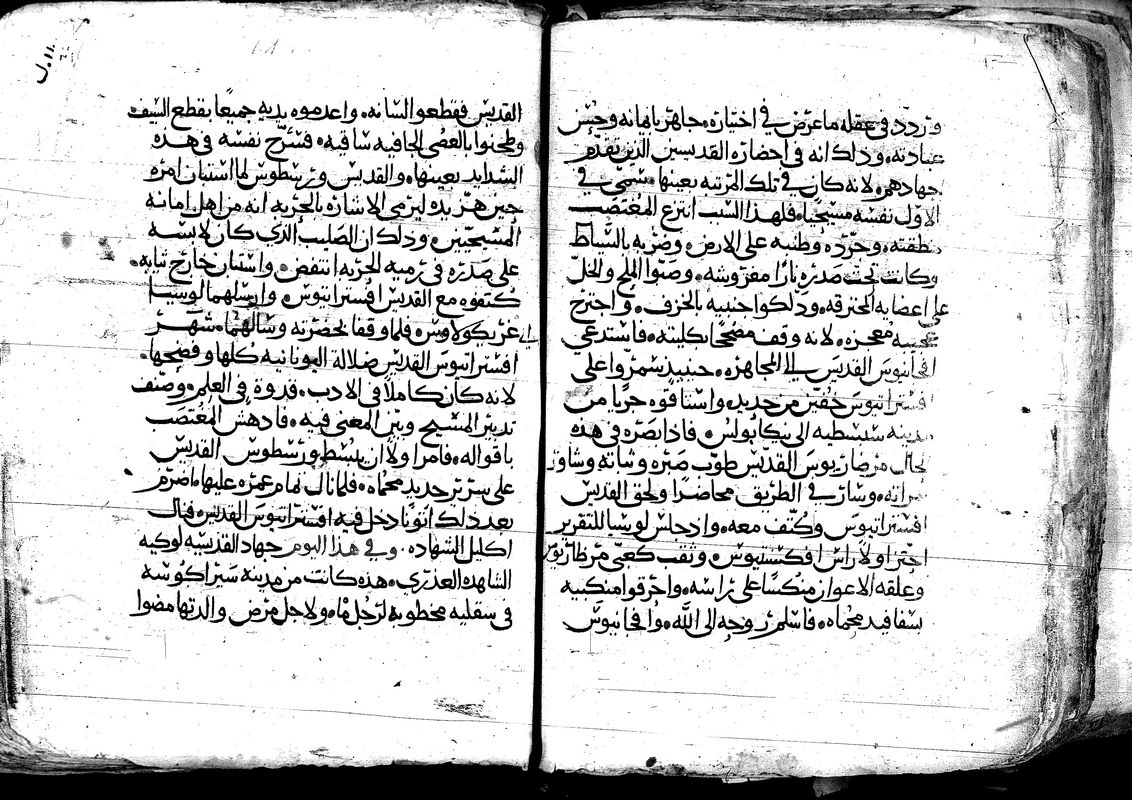 وردد في عقله ما عرض في اختباره جاهر بايمانه وحسن
عبادته، وذلك انه في احضاره القديسين الذين تقدم
جهادهم، لانه كان في تلك المرتبه بعينها، سمي في
الاول نفسه مسيحيا، فلهذا السبب انتزع المغتصب
منطقته، وجرده وطنبه على الارض، وضربه بالسياط
وكانت تحت صدره نارا مفروشه، وصبوا الملح والخل
على اعضايه المحترقه، ودلكوا جنبيه بالخزف، واجترح
معجزه، لانه وقف مصححا بكليته، فاستدعي
افجانيوس القديس الى المجاهره، حينيذ سمروا على
افستراتيوس خفين من حديد، واستاقوه جريا من
مدينه سبسطيه الى نيكابولس، فاذ ابصره في هذه
الحال مرضاريوس القديس طوب صبره وثباته وشاور
امراته، وسار في الطريق محاضرا ولحق القديس
افستراتيوس وكتف معه، واذ جلس لوسيا للتقرير
اجتز اولا راس افكسنتيوس، وثقب كعبي مرظاريوس
وعلقه الاعوان منكسا على راسه، واحرقوا منكبيه
بسفافيد محماه، فاسلم روحه الى الله، وافجانيوس
القديس فقطعوا لسانه، واعدموه يديه جميعا بقطع السيف
وطحنوا بالعصى الجافيه ساقيه، فسرح نفسه في هذه
الشدايد بعينها، والقديس ورسطوس لما استبان امره
حين هز يده ليرمي الاشاره بالحربه انه من اهل امانه
المسيحيين، وذلك ان الصليب الذي كان لابسه
على صدره في رميه الحربه انتفض، واستبان خارج ثيابه،
كتفوه مع القديس افستراتيوس، وارسلهما لوسيا
الى اغريكولاوس، فلما وقفا بحضرته وسالهما، شهر
افستراتيوس القديس ضلالة اليونانيه كلها وفضحها،
لانه كان كاملا في الادب، قدوة في العلم، وصنف
تدبير المسيح وبين المعنى فيه، فادهش المغتصب
باقواله، فامر اولا ان يبسط ورسطوس القديس
على سرير حديد محماه، فلما نال تمام عمره عليها، اضرم
بعد ذلك اتونا دخل فيه افستراتيوس القديس، فنال
اكليل الشهاده. وفي هذا اليوم جهاد القديسه لوكيه
الشاهده العذرى، هذه كانت من مدينه سيراكوسه
في سقليه مخطوبة لرجل ما، ولاجل مرض والدتها مضوا